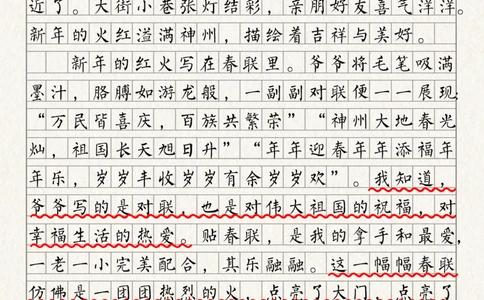 近了。大街小巷张灯结彩，亲朋好友喜气洋洋。
新年的火红溢满神州，描绘着吉祥与美好。
新年的火红写在春联里。爷爷将毛笔吸满
墨汁，胳膊如游龙般，一副副对联便一一展现：
“万民皆喜庆，百族共繁荣”“神州大地春光
灿，祖国长天旭日升”“年年迎春年年添福年
年乐，岁岁丰收岁岁有余岁岁欢”。我知道，
爷爷写的是对联，也是对伟大祖国的祝福，对
幸福生活的热爱。贴春联，是我的拿手和最爱，
一老一小完美配合，其乐融融。这一幅幅春联
仿佛是一团团热烈的火，点亮了大门，点亮了